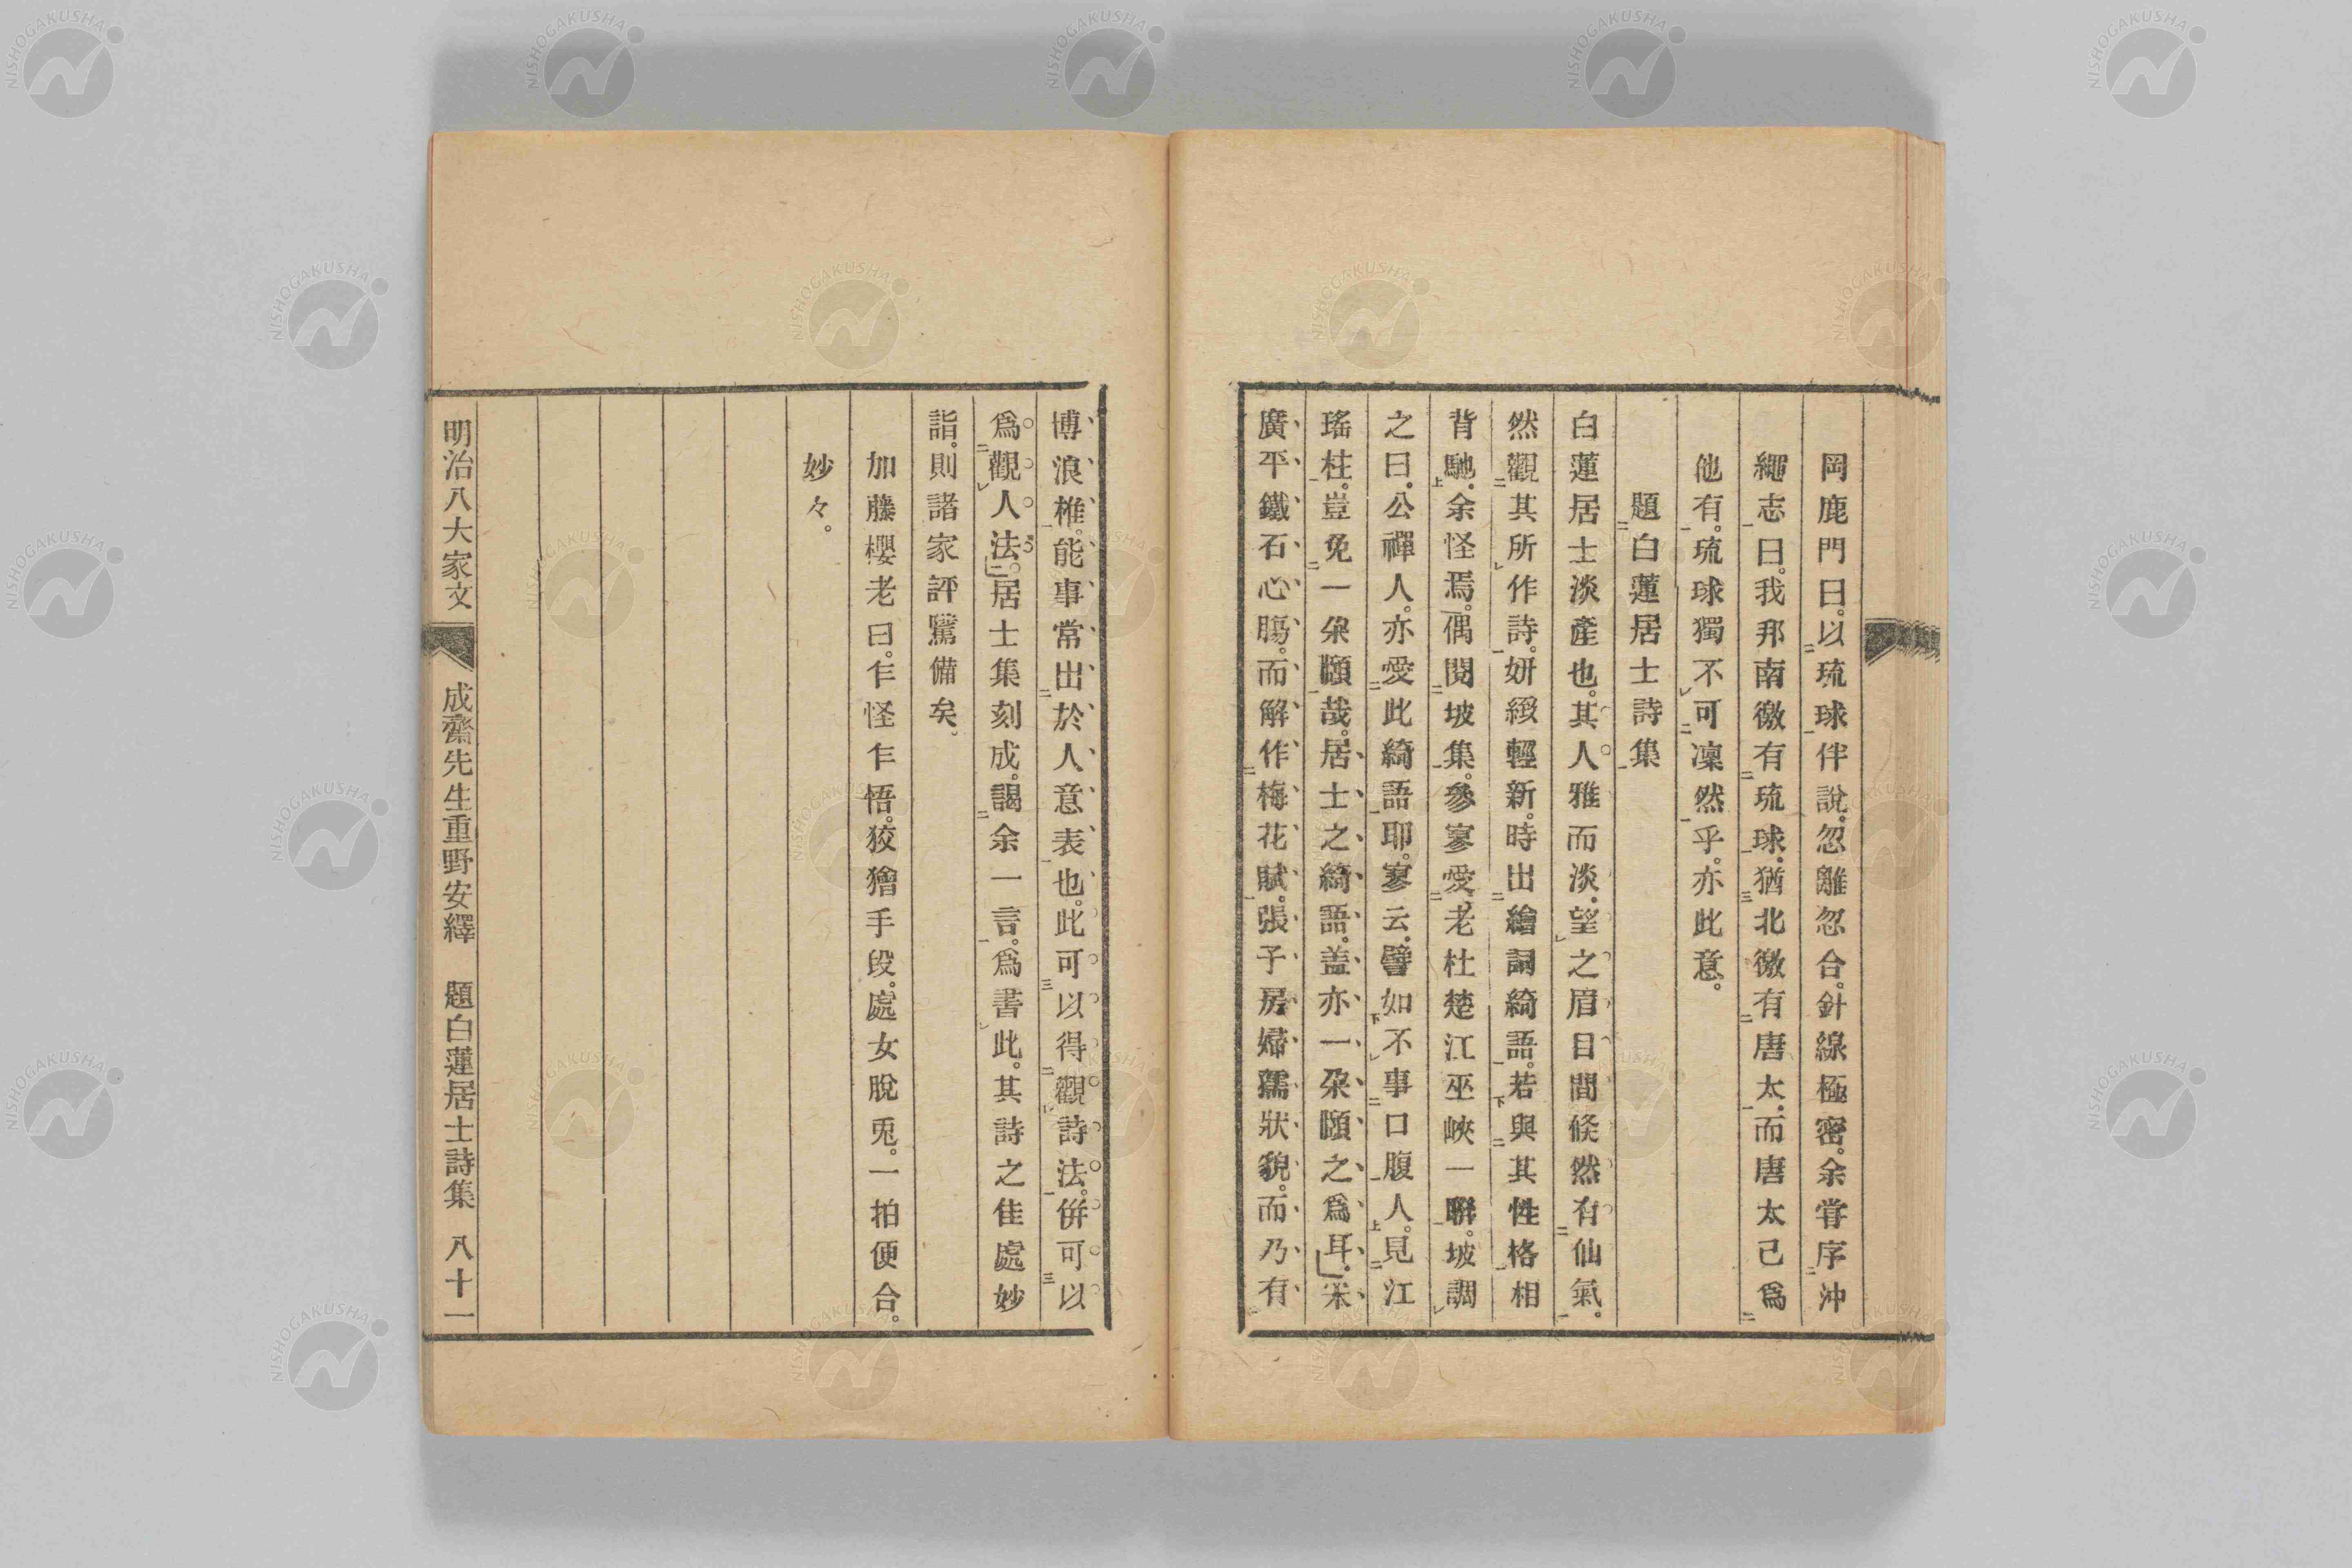 岡鹿門曰。以琉球伴說。忽離忽合。針線極密。余嘗序沖
繩志曰。我邦南徼有琉球。猶北徼有唐太。而唐太已爲
他有。琉球獨不可凜然乎。亦此意。
題白蓮居士詩集
白蓮居士淡產也。其人雅而淡。望之眉目間倏然有仙氣。
然觀其所作詩。妍綴輕新。時出繪詞綺語。若與其性格相
背馳。余怪焉。偶閱坡集。參寥愛老杜楚江巫峽一聯。坡調
之曰。公禪人。亦愛此綺語耶。寥云。譬如不事口腹人。見江
瑤柱。豈免一朶頤哉。居士之綺語。蓋亦一朶頤之爲耳。宋
廣平鐵石心腸。而解作梅花賦。張子房婦孺狀貌。而乃有
博浪椎。能事常出於人意表也。此可以得觀詩法。併可以
爲觀人法。居士集刻成。謁余一言。爲書此。其詩之佳處妙
詣。則諸家評騭備矣。
加藤櫻老曰。乍怪乍悟。狡獪手段。處女脫兎。一拍便合。
妙々。
明治八大家文 成齋先生重野安繹 題白蓮居士詩集 八十一
NISHOGAKUSHA